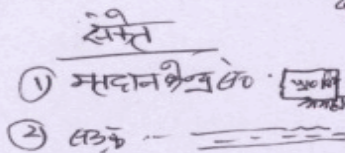 संकेत
① मतदान केन्द्र सं०
② सडक